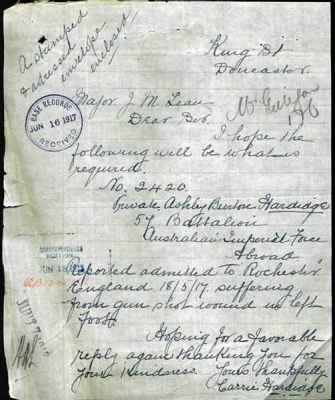 A stamped
& addressed
envelope
enclosed
King St
Doncaster.
BASE RECORDS
JUN 16 1917
RECEIVED
Major J M Lean
Dear Sir,
I hope the
following will be what is
required.
No. 2420.
Private Ashby Burton Hardidge
57 Battalion
Australian Imperial Force
Abroad.
Reported admitted to Rochester
England 18/5/17 suffering
from gun shot wound in left
foot.
Hoping for a favorable
reply again thanking you for
your kindness. Yours thankfully
Carrie Hardidge